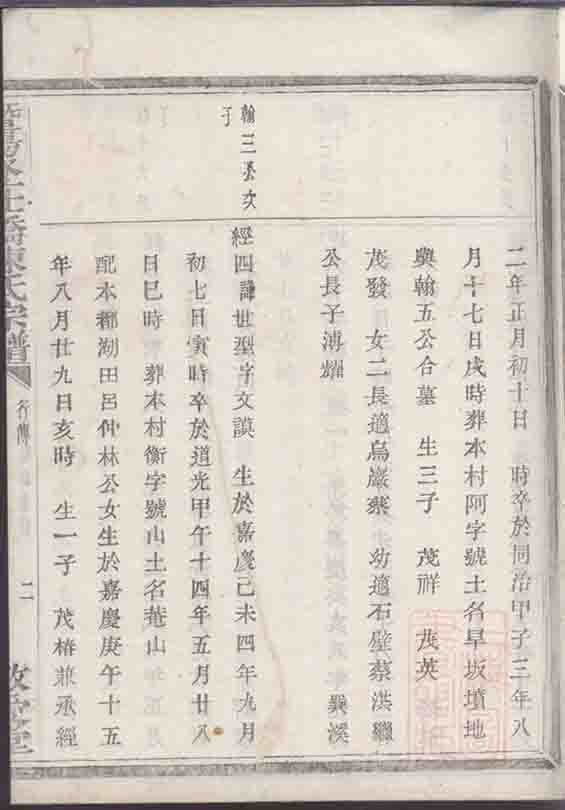 二年正月初十日 時卒於同治甲子三年八
月十七日戌時葬本村阿字號土名旱坂墳地
與翰五公合墓 生三子 茂祥 茂英
茂發 女二長適烏巖蔡 幼適石壁蔡洪
公長子溥耀 溪
翰三公次
子
經四諱世型字文謨 生於嘉慶己未四年九月
初七日寅時卒於道光甲午十四年五月廿八
日巳時 葬本村衡字號山土名菴山
配本都湖田呂仲林公女生於嘉慶庚午十五
年八月廿九日亥時 生一子 茂椿兼承經
橋陳氏宗譜
行傳
二
敦堂